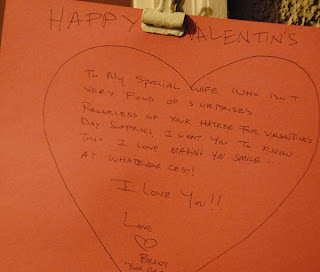 HAPPY VALENTIN'S
TO MY SPECIAL WIFE WHO ISN'T
VERY FOND OF SURPRISES
REGARDLESS OF YOUR HATRED FOR VALENTINE'S
DAY SURPRISES, I WANT YOU TO KNOW
THAT I LOVE MAKING YOU SMILE..
AT WHATEVER COST!
I LOVE YOU!!
LOVE
BRANT
YOUR